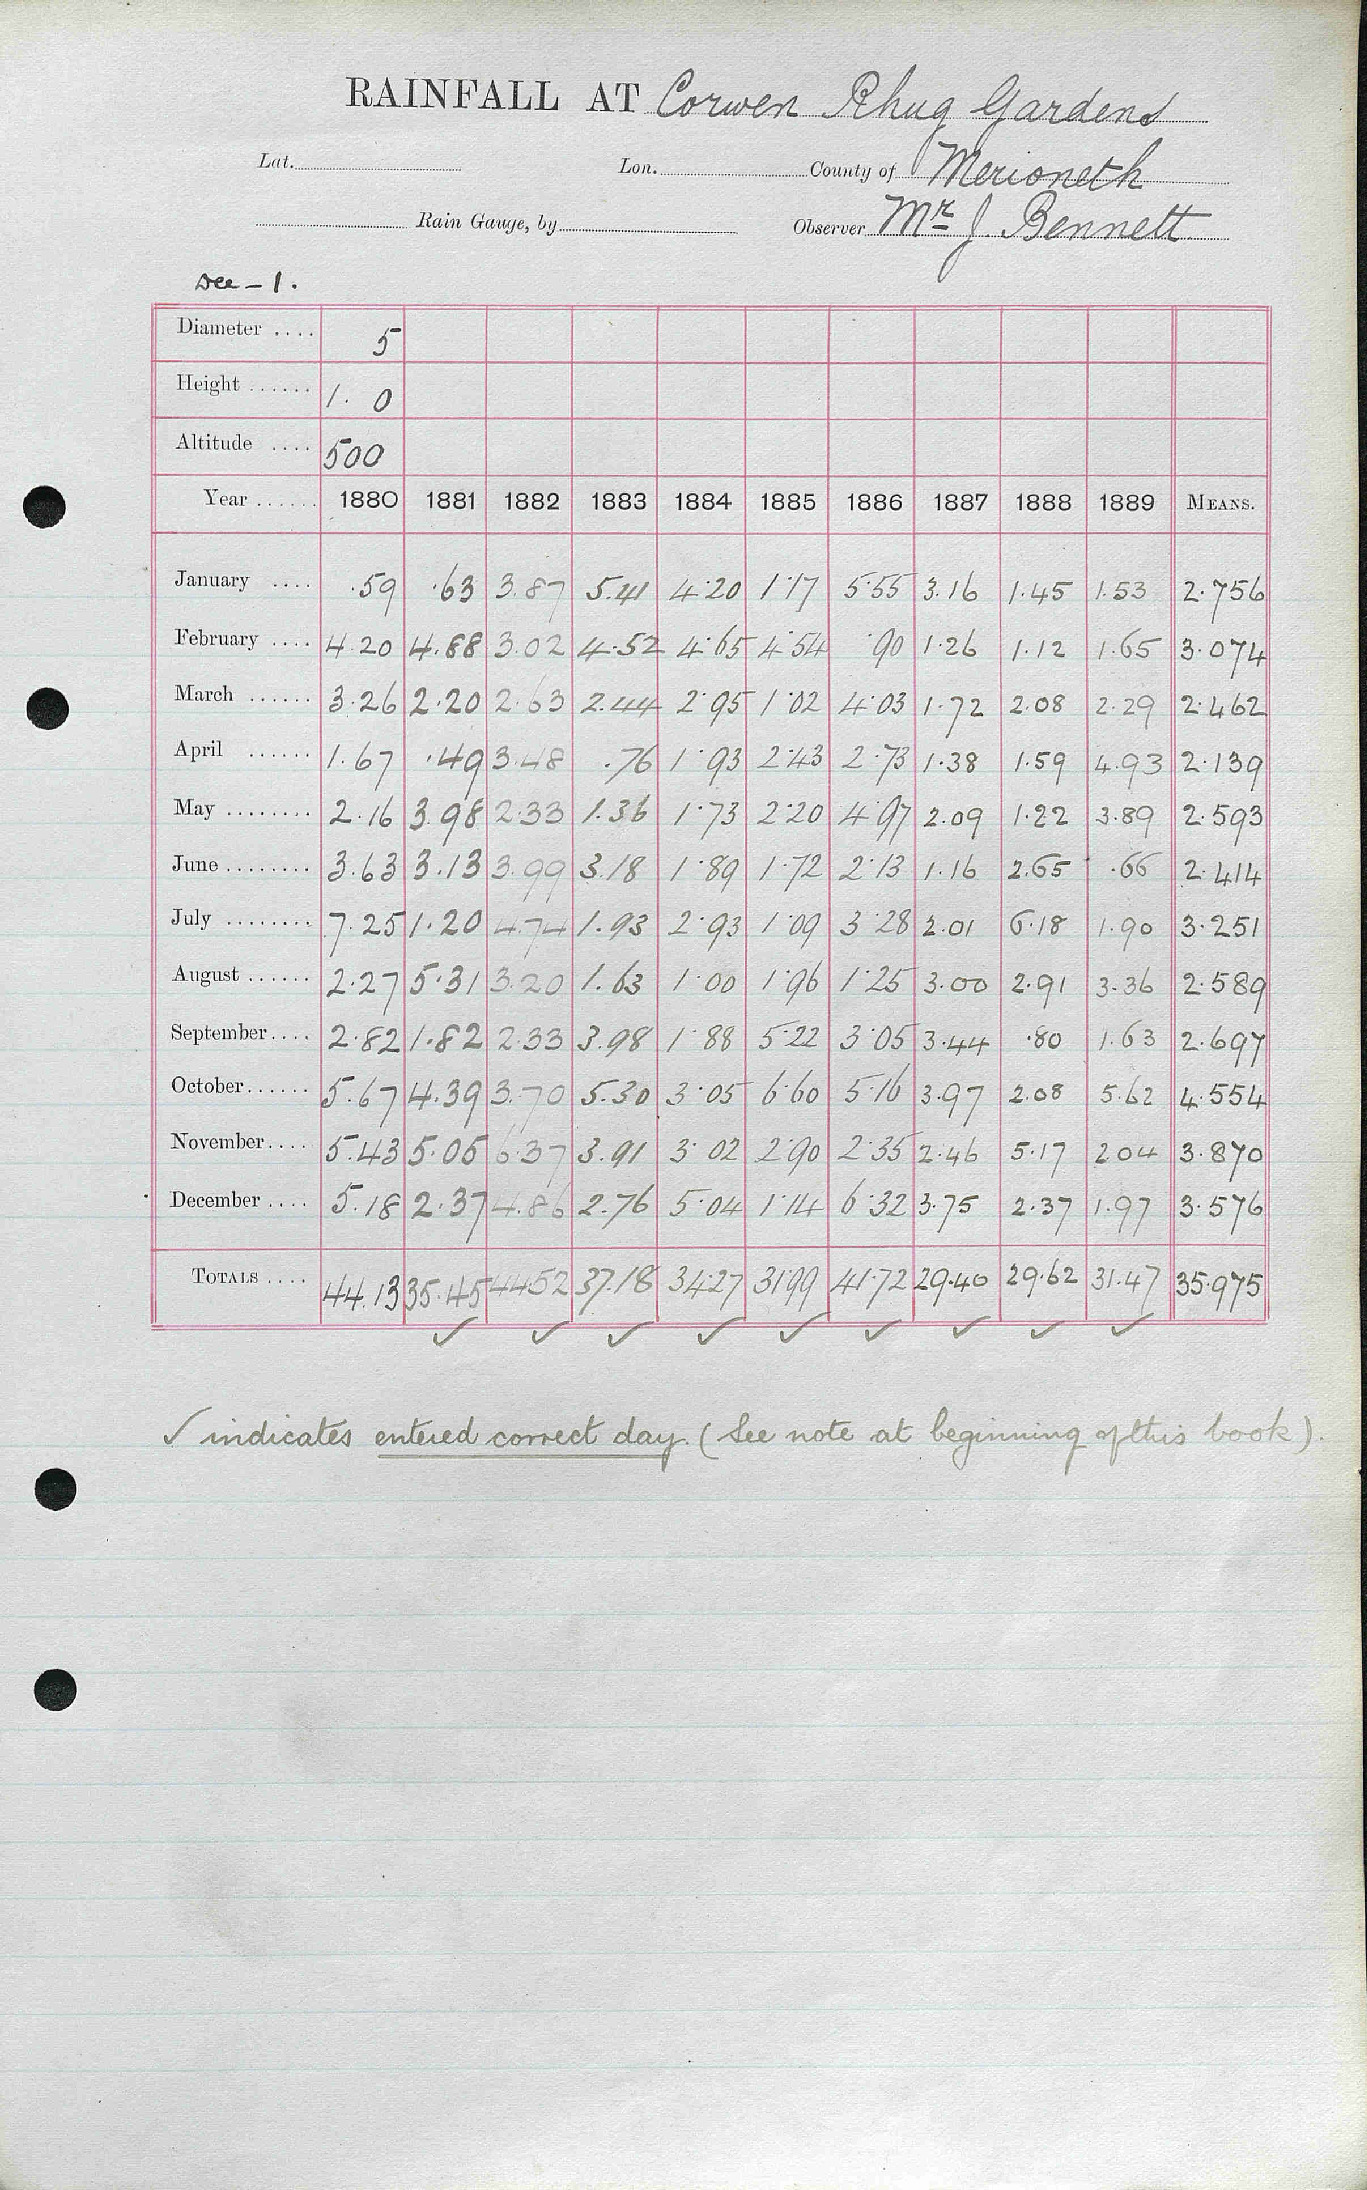 RAINFALL AT Corwen Rhug Gardens
Lat. Lon. County of Merioneth
Rain Gauge, by Observer Mr J. Bennett
Dec - 1.
Diameter .... 5
Height ...... 1. 0
Altitude .... 500
Year ...... 1880 1881 1882 1883 1884 1885 1886 1887 1888 1889 MEANS.
January .... .59 .63 3.87 5.41 4.20 1.17 5.55 3.16 1.45 1.53 2.756
February .... 4.20 4.88 3.02 4.52 4.65 4.54 .90 1.26 1.12 1.65 3.074
March ...... 3.26 2.20 2.63 2.44 2.95 1.02 4.03 1.72 2.08 2.29 2.462
April ...... 1.67 .49 3.48 .76 1.93 2.43 2.73 1.38 1.59 4.93 2.139
May ........ 2.16 3.98 2.33 1.36 1.73 2.20 4.97 2.09 1.22 3.89 2.593
June ........ 3.63 3.13 3.99 3.18 1.89 1.72 2.13 1.16 2.65 .66 2.414
July ........ 7.25 1.20 4.74 1.93 2.93 1.09 3.28 2.01 6.18 1.90 3.251
August ...... 2.27 5.31 3.20 1.63 1.00 1.96 1.25 3.00 2.91 3.36 2.589
September.... 2.82 1.82 2.33 3.98 1.88 5.22 3.05 3.44 .80 1.63 2.697
October...... 5.67 4.39 3.70 5.30 3.05 6.60 5.16 3.97 2.08 5.62 4.554
November.... 5.43 5.05 6.37 3.91 3.02 2.90 2.35 2.46 5.17 2.04 3.870
December .... 5.18 2.37 4.86 2.76 5.04 1.14 6.32 3.75 2.37 1.97 3.576
TOTALS .... 44.13 35.45 44.52 37.18 34.27 31.99 41.72 29.40 29.62 31.47 35.975
✓ ✓ ✓ ✓ ✓ ✓ ✓ ✓ ✓
✓ indicates entered correct day. (See note at beginning of this book).